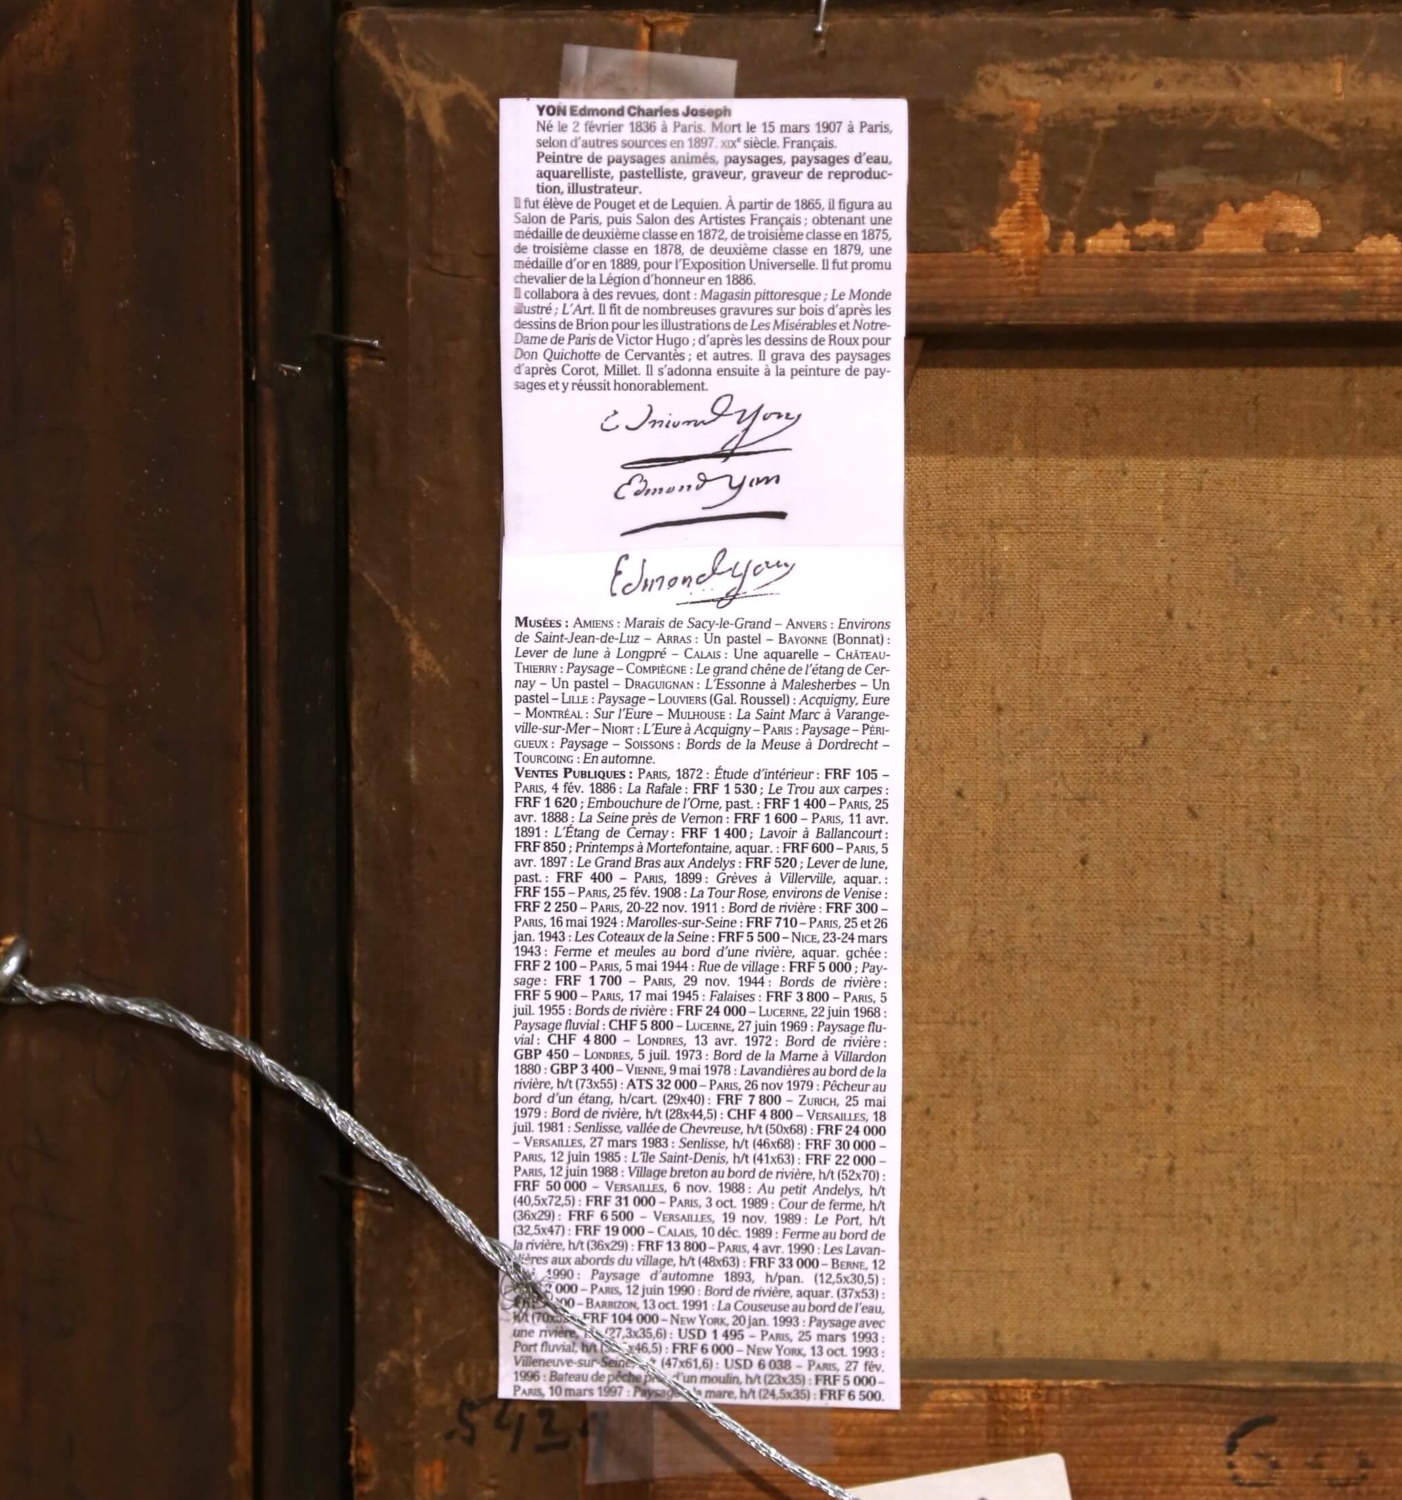 YON Edmond Charles Joseph
Né le 2 février 1836 à Paris. Mort le 15 mars 1907 à Paris,
selon d'autres sources en 1897. XIXe siècle. Français.
Peintre de paysages animés, paysages, paysages d'eau,
aquarelliste, pastelliste, graveur, graveur de reproduc-
tion, illustrateur.
Il fut élève de Pouget et de Lequien. À partir de 1865, il figura au
Salon de Paris, puis Salon des Artistes Français ; obtenant une
médaille de deuxième classe en 1872, de troisième classe en 1875,
de troisième classe en 1878, de deuxième classe en 1879, une
médaille d'or en 1889, pour l'Exposition Universelle. Il fut promu
chevalier de la Légion d'honneur en 1886.
Il collabora à des revues, dont : Magasin pittoresque ; Le Monde
illustré ; L'Art. Il fit de nombreuses gravures sur bois d'après les
dessins de Brion pour les illustrations de Les Misérables et Notre-
Dame de Paris de Victor Hugo ; d'après les dessins de Roux pour
Don Quichotte de Cervantès ; et autres. Il grava des paysages
d'après Corot, Millet. Il s'adonna ensuite à la peinture de pay-
sages et y réussit honorablement.
Edmond Yon
Edmond Yon
Edmond Yon
MUSÉES : AMIENS : Marais de Sacy-le-Grand – ANVERS : Environs
de Saint-Jean-de-Luz – ARRAS : Un pastel – BAYONNE (Bonnat) :
Lever de lune à Longpré – CALAIS : Une aquarelle – CHÂTEAU-
THIERRY : Paysage – COMPIÈGNE : Le grand chêne de l'étang de Cer-
nay – Un pastel – DRAGUIGNAN : L'Essonne à Malesherbes – Un
pastel – LILLE : Paysage – LOUVIERS (Gal. Roussel) : Acquigny, Eure
– MONTRÉAL : Sur l'Eure – MULHOUSE : La Saint Marc à Varange-
ville-sur-Mer – NIORT : L'Eure à Acquigny – PARIS : Paysage – PÉRI-
GUEUX : Paysage – SOISSONS : Bords de la Meuse à Dordrecht –
TOURCOING : En automne.
VENTES PUBLIQUES : PARIS, 1872 : Étude d'intérieur : FRF 105 –
PARIS, 4 fév. 1886 : La Rafale : FRF 1 530 ; Le Trou aux carpes :
FRF 1 620 ; Embouchure de l'Orne, past. : FRF 1 400 – PARIS, 25
avr. 1888 : La Seine près de Vernon : FRF 1 600 – PARIS, 11 avr.
1891 : L'Étang de Cernay : FRF 1 400 ; Lavoir à Ballancourt :
FRF 850 ; Printemps à Mortefontaine, aquar. : FRF 600 – PARIS, 5
avr. 1897 : Le Grand Bras aux Andelys : FRF 520 ; Lever de lune,
past. : FRF 400 – PARIS, 1899 : Grèves à Villerville, aquar. :
FRF 155 – PARIS, 25 fév. 1908 : La Tour Rose, environs de Venise :
FRF 2 250 – PARIS, 20-22 nov. 1911 : Bord de rivière : FRF 300 –
PARIS, 16 mai 1924 : Marolles-sur-Seine : FRF 710 – PARIS, 25 et 26
jan. 1943 : Les Coteaux de la Seine : FRF 5 500 – NICE, 23-24 mars
1943 : Ferme et meules au bord d'une rivière, aquar. gchée :
FRF 2 100 – PARIS, 5 mai 1944 : Rue de village : FRF 5 000 ; Pay-
sage : FRF 1 700 – PARIS, 29 nov. 1944 : Bords de rivière :
FRF 5 900 – PARIS, 17 mai 1945 : Falaises : FRF 3 800 – PARIS, 5
juil. 1955 : Bords de rivière : FRF 24 000 – LUCERNE, 22 juin 1968 :
Paysage fluvial : CHF 5 800 – LUCERNE, 27 juin 1969 : Paysage flu-
vial : CHF 4 800 – LONDRES, 13 avr. 1972 : Bord de rivière :
GBP 450 – LONDRES, 5 juil. 1973 : Bord de la Marne à Villardon
1880 : GBP 3 400 – VIENNE, 9 mai 1978 : Lavandières au bord de la
rivière, h/t (73x55) : ATS 32 000 – PARIS, 26 nov 1979 : Pêcheur au
bord d'un étang, h/cart. (29x40) : FRF 7 800 – ZURICH, 25 mai
1979 : Bord de rivière, h/t (28x44,5) : CHF 4 800 – VERSAILLES, 18
juil. 1981 : Senlisse, vallée de Chevreuse, h/t (50x68) : FRF 24 000
– VERSAILLES, 27 mars 1983 : Senlisse, h/t (46x68) : FRF 30 000 –
PARIS, 12 juin 1985 : L'Île Saint-Denis, h/t (41x63) : FRF 22 000 –
PARIS, 12 juin 1988 : Village breton au bord de rivière, h/t (52x70) :
FRF 50 000 – VERSAILLES, 6 nov. 1988 : Au petit Andelys, h/t
(40,5x72,5) : FRF 31 000 – PARIS, 3 oct. 1989 : Cour de ferme, h/t
(36x29) : FRF 6 500 – VERSAILLES, 19 nov. 1989 : Le Port, h/t
(32,5x47) : FRF 19 000 – CALAIS, 10 déc. 1989 : Ferme au bord de
la rivière, h/t (36x29) : FRF 13 800 – PARIS, 4 avr. 1990 : Les Lavan-
dières aux abords du village, h/t (48x63) : FRF 33 000 – BERNE, 12
1990 : Paysage d'automne 1893, h/pan. (12,5x30,5) :
000 – PARIS, 12 juin 1990 : Bord de rivière, aquar. (37x53) :
– BARBIZON, 13 oct. 1991 : La Couseuse au bord de l'eau,
h/t FRF 104 000 – NEW YORK, 20 jan. 1993 : Paysage avec
une rivière, (27,3x35,6) : USD 1 495 – PARIS, 25 mars 1993 :
Port fluvial, h/t : FRF 6 000 – NEW YORK, 13 oct. 1993 :
Villeneuve-sur-Seine, (47x61,6) : USD 6 038 – PARIS, 27 fév.
1996 : Bateau de pêche d'un moulin, h/t (23x35) : FRF 5 000 –
PARIS, 10 mars 1997 : Paysage mare, h/t (24,5x35) : FRF 6 500.